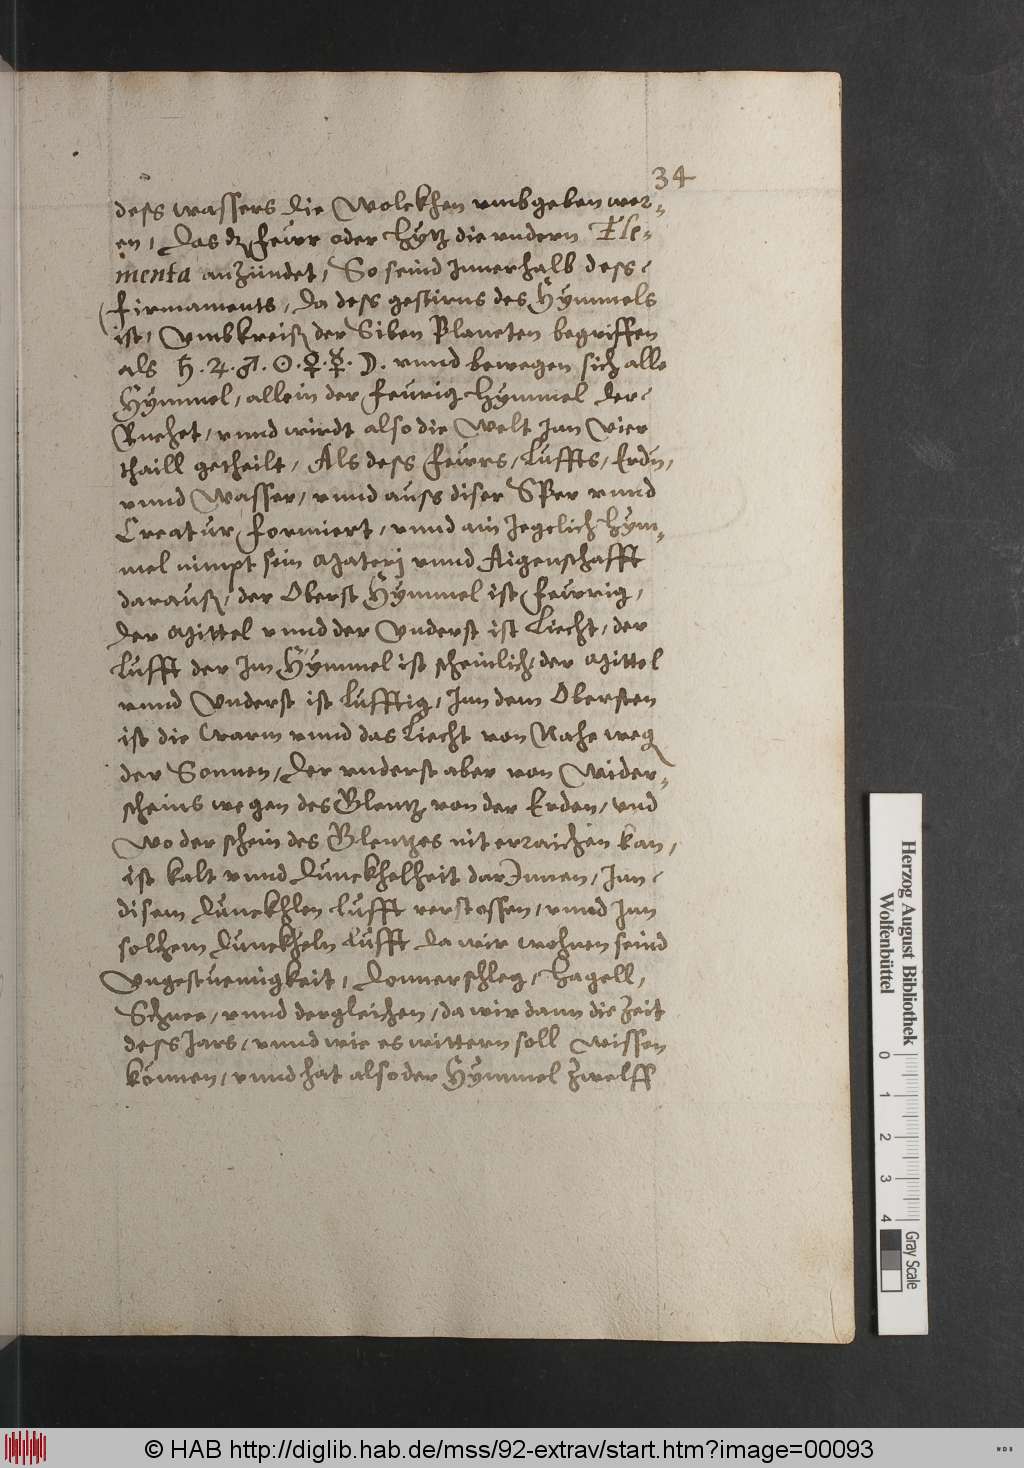 34
dess wassers die Wolckhen vmbgeben wer„
en, das dz fewr oder Hytz die vndern Ele-
menta anzündet, So seind Innerhalb dess
firmaments, da dess gestirns des Hÿmmels
ist, Vmbkreiß der Siben Planeten begriffen
als ♄. ♃. ♂. ☉. ♀. ☿. ☽. vnnd bewegen sich alle
Hÿmmel, allein der feurig Hÿmmel der
Ruehet, vnnd wirdt also die Welt Inn Vier
thaill getheilt, Als dess fewrs, Luffts, Erdn,
vnnd Wasser, vnnd auss diser Sper vnnd
Creatur formiert, vnnd ain Jegelich Hÿm„
mel nimpt sein Materj vnnd Aigenschafft
darauß, der Oberst Hÿmmel ist fewrig,
der Mittel vnnd der Vnderst ist Liecht, der
Lufft der Im Hÿmmel ist scheinlich, der Mittel
vnnd Vnderst ist Lufftig, Inn dem Obersten
ist die Warm vnnd das Liecht von Nahe weg
der Sonnen, der vnderst aber von Wider„
scheins wegen des Glentz von der Erden, vnd
wo der schein des Glentzes nit erraichen kan,
ist kalt vnnd Dunckhelheit darInnen, Inn
disem Dunckhlen Lufft verstossen, vnnd Inn
solchem Dunckheln Lufft da wir wohnen seind
Vngestuemigkeit, Donnerschleg, Hagell,
Schnee, vnnd dergleichen, da wir dann die Zeit
dess Jars, vnnd wie es wittern soll Wissen
können, vnnd hat also der Hÿmmel Zwelff
Herzog August Bibliothek
Wolfenbüttel
0 1 2 3 4
Gray Scale
© HAB http://diglib.hab.de/mss/92-extrav/start.htm?image=00093
WDB